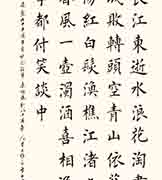 長江東逝水浪花淘
成敗轉頭空青山依
陽紅白髮漁樵江渚
春風一壺濁酒喜相
事都付笑談中